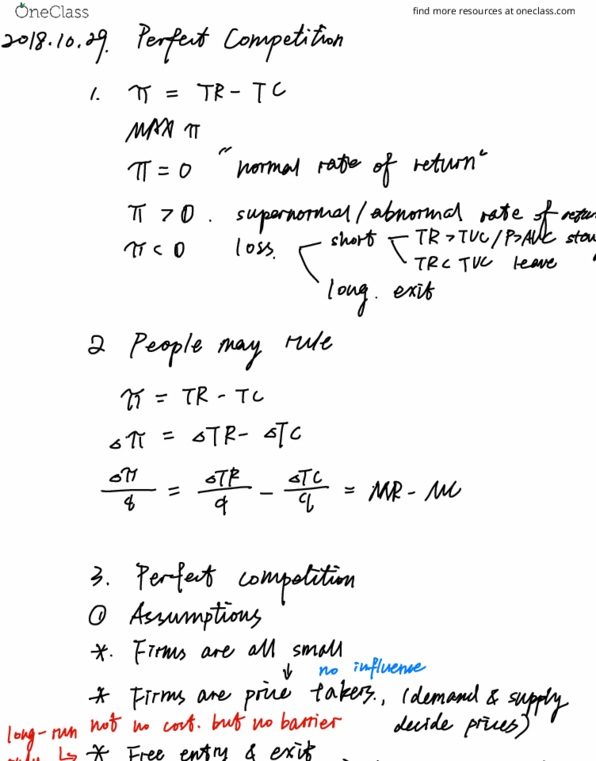 OneClass
find more resources at oneclass.com
2018.10.29. Perfect Competition
1. π = TR - TC
MAX π
π = 0 "normal rate of return"
π > 0. supernormal/abnormal rate of return
π < 0 loss. short TR > TVC / P>AVC stay
TR < TVC leave
long. exit
2 People may rule
π = TR - TC
△π = △TR - △TC
△π/q = △TR/q - △TC/q = MR - MC
3. Perfect competition
① Assumptions
*. Firms are all small
↓ no influence
* Firms are price takers., (demand & supply
decide prices)
long-run not no cost. but no barrier
only ↳ * Free entry & exit